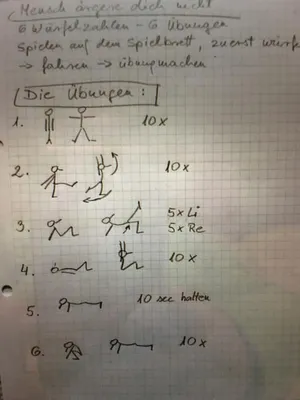 Mensch ärgere dich nicht
6 Würfelzahlen - 6 Übungen
Spielen auf dem Spielbrett, zuerst würfeln
→ fahren → übungmachen
Die Übungen:
1. 10x
2. 10x
3. 5x Li
5x Re
4. 10x
5. 10 sec halten
6. 10x